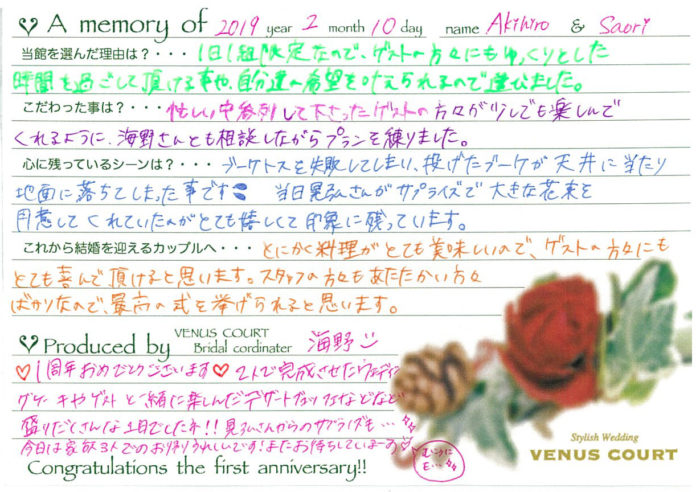 A memory of 2019 year 2 month 10 day name Akihiro & Saori
当館を選んだ理由は？・・・ 1日1組限定なので、ゲストの方々にもゆっくりとした
時間を過ごして頂ける事や、自分達の希望を叶えられるので選びました。
こだわった事は？・・・ 忙しい中参列して下さったゲストの方々が少しでも楽しんで
くれるように、海野さんとも相談しながらプランを練りました。
心に残っているシーンは？・・・ ブーケトスを失敗してしまい、投げたブーケが天井に当たり
地面に落ちてしまった事です 当日晃弘さんがサプライズで大きな花束を
用意してくれていたのがとても嬉しくて印象に残っています。
これから結婚を迎えるカップルへ・・・ とにかく料理がとても美味しいので、ゲストの方々にも
とても喜んで頂けると思います。スタッフの方々もあたたかい方々
ばかりなので、最高の式を挙げられると思います。
Produced by VENUS COURT Bridal cordinater 海野
♡1周年おめでとうございます♡ 2人で完成させたウェディン
グケーキやゲストと一緒に楽しんだデザートブッフェなどなど
盛りだくさんな1日でしたネ!! 晃弘さんからのサプライズも…
今日は家族3人でのお帰りうれしいです！またお待ちしていまーす
Congratulations the first anniversary!!
Stylish Wedding
VENUS COURT